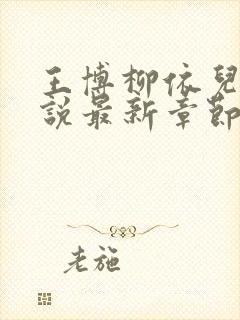 王博柳依兒
說最新章節
老施